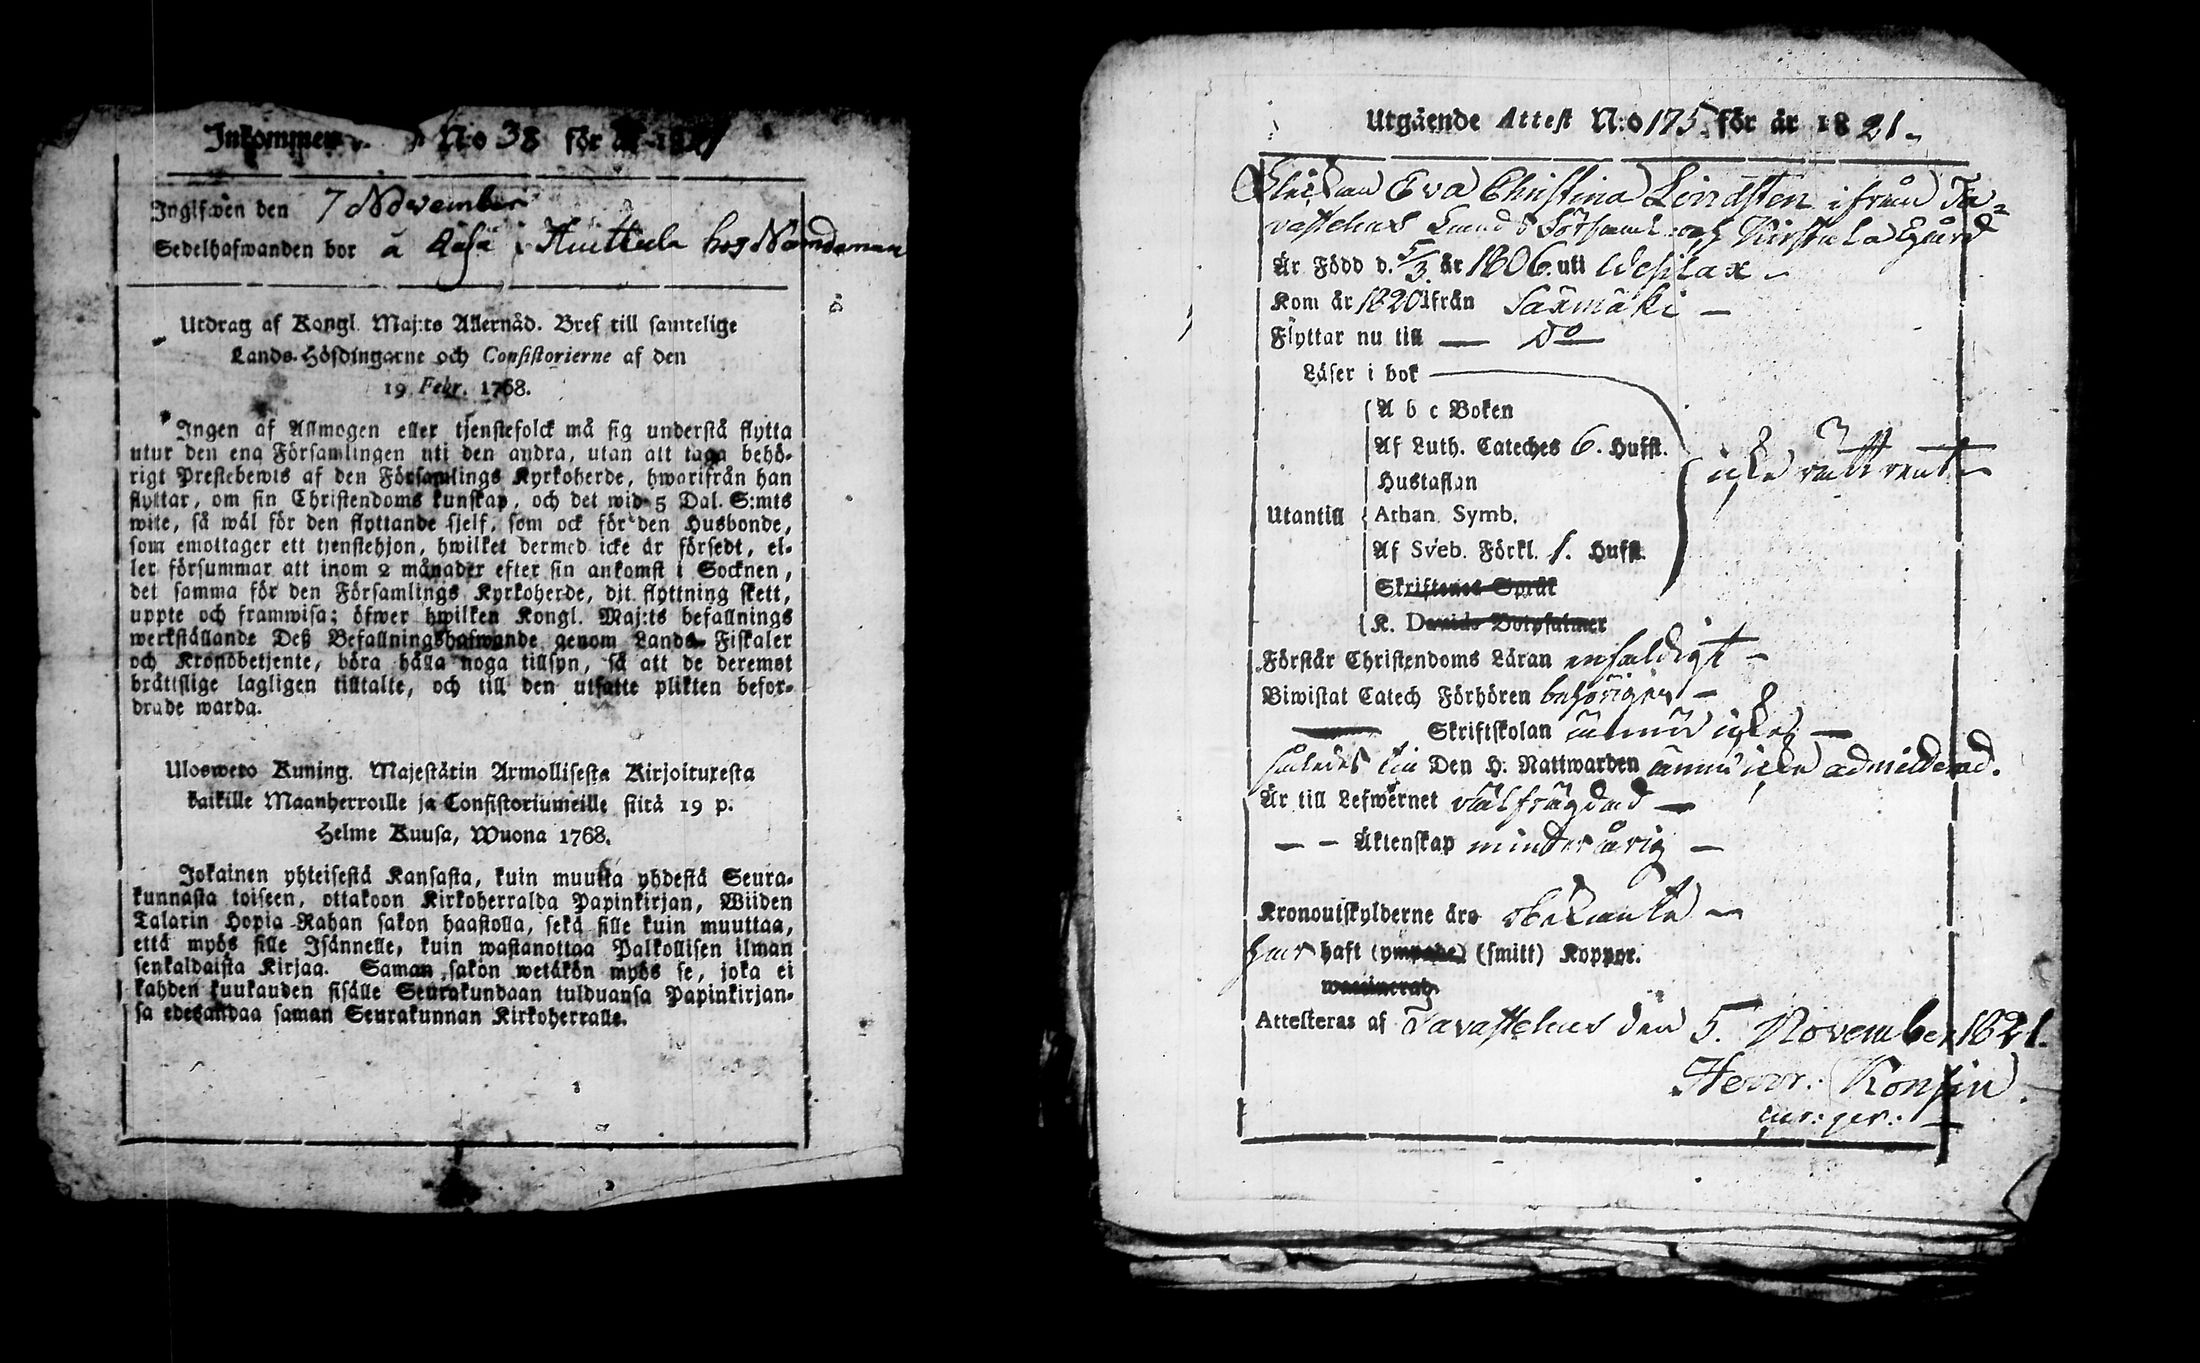 Inkommen N:o 38 för år 1821
Ingifwen den 7 November
Sedelhafwanden bor å i Huittula hos Nämdeman
Utdrag af Kongl. Maj:ts Allernåd. Bref till samtelige
Lands-Höfdingarne och Consistorierne af den
19 Febr. 1768.
Ingen af Allmogen eller tjenstefolck må sig understå flytta
utur den ena Församlingen uti den andra, utan att taga behö-
rigt Prestebewis af den Församlings Kyrkoherde, hwarifrån han
flyttar, om sin Christendoms kunskap, och det wid 5 Dal. S:mts
wite, så wäl för den flyttande sjelf, som ock för den Husbonde,
som emottager ett tjenstehjon, hwilket dermed icke är försedt, el-
ler försummar att inom 2 månader efter sin ankomst i Socknen,
det samma för den Församlings Kyrkoherde, dit flyttning skett,
uppte och framwisa; öfwer hwilken Kongl. Maj:ts befallnings
werkställande Deß Befallningshafwande genom Lands-Fiskaler
och Kronobetjente, böra hålla noga tillsyn, så att de deremot
bråttslige lagligen tilltalte, och till den utsatte plikten befor-
drade warda.
Uloswero Kuning. Majestätin Armollisesta Kirjoituxesta
kaikille Maanherroille ja Consistoriumeille siitä 19 p.
Helme Kuusa, Wuona 1768.
Jokainen yhteisestä Kansasta, kuin muutta yhdestä Seura-
kunnasta toiseen, ottakoon Kirkoherralda Papinkirjan, Wiiden
Talarin Hopia-Rahan sakon haastolla, sekä sille kuin muuttaa,
että myös sille Isännelle, kuin wastanottaa Palkollisen ilman
senkaldaista Kirjaa. Saman sakon wetäkön myös se, joka ei
kahden kuukauden sisälle Seurakundaan tulduansa Papinkirjan-
sa edesandaa saman Seurakunnan Kirkoherralle.
Utgående Attest N:o 175. för år 1821.
Flickan Eva Christina Lindsten ifrån Ta-
vastehus Lands Församl: och Kirstula Gård
Är Född d. 5/3 år 1806. uti Wesilax
Kom år 1820 ifrån Säxmäki
Flyttar nu till — Do
Läser i bok
A b c Boken
Af Luth. Cateches 6. Hufst.
Hustaflan
icke rätt rent
Utantill Athan. Symb.
Af Sveb. Förkl. 1. Hufst.
Skriftenes Språk
K. Davids Botpsalmer
Förstår Christendoms Läran enfaldigt
Biwistat Catech Förhören behörigen
Skriftskolan ännu icke
således till Den H. Nattwarden ännu icke admitterad.
Är till Lefwernet välfrägdad
— — Äktenskap minderårig
Kronoutskylderne äro obekante
har haft (ympade) (smitt) Koppor.
waccinerad.
Attesteras af Tavastehus den 5. November 1821.
Henr: Konsin